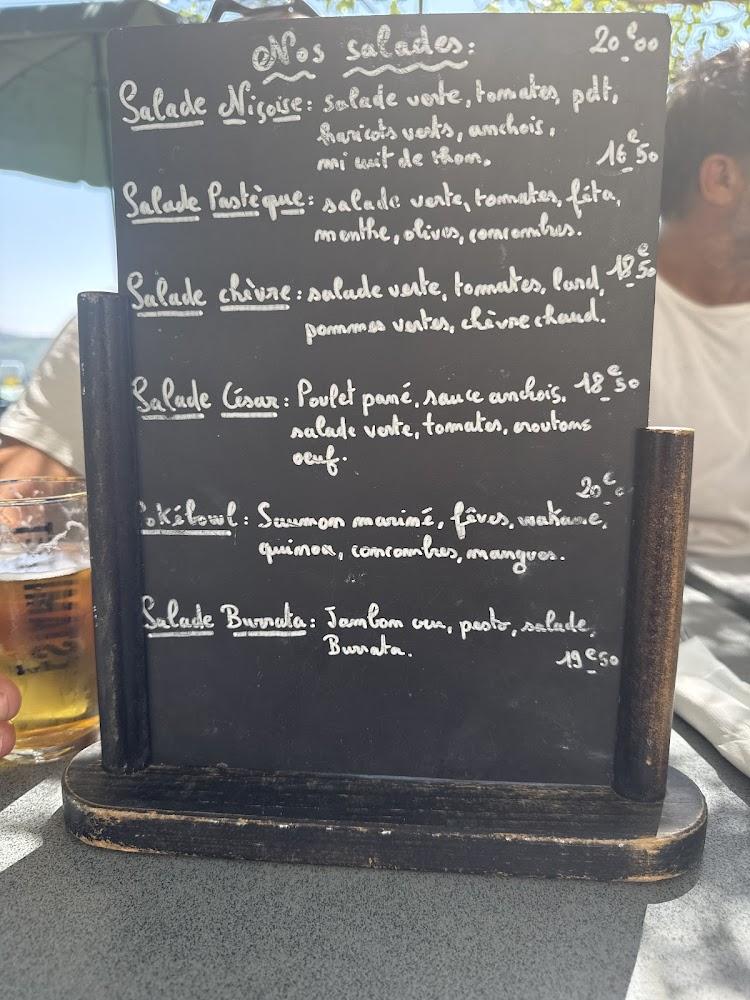 Nos salades: 20€00
Salade Niçoise: salade verte, tomates, pdt,
haricots verts, anchois,
mi cuit de thon. 16€50
Salade Pastèque: salade verte, tomates, féta,
menthe, olives, concombres.
Salade chèvre: salade verte, tomates, lard, 18€50
pommes vertes, chèvre chaud.
Salade César: Poulet pané, sauce anchois, 18€50
salade verte, tomates, croutons
oeuf.
20€
Pokébowl: Saumon mariné, fêves, wakame,
quinoa, concombres, mangues.
Salade Burrata: Jambon cru, pesto, salade,
Burrata. 19€50